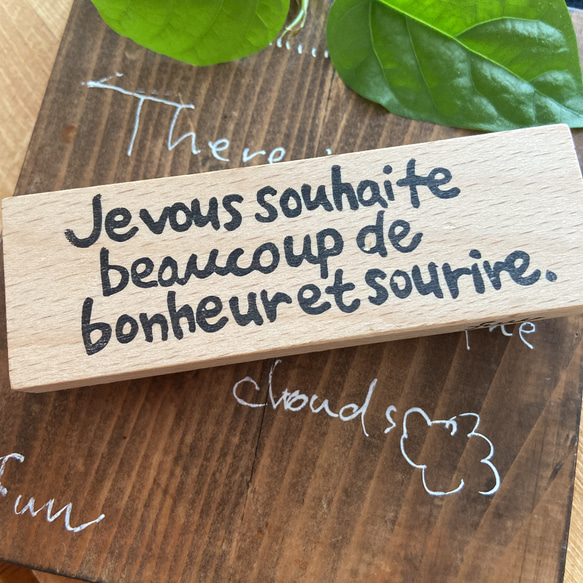 There
Je vous souhaite
beaucoup de
bonheur et sourire.
The
clouds
Fun